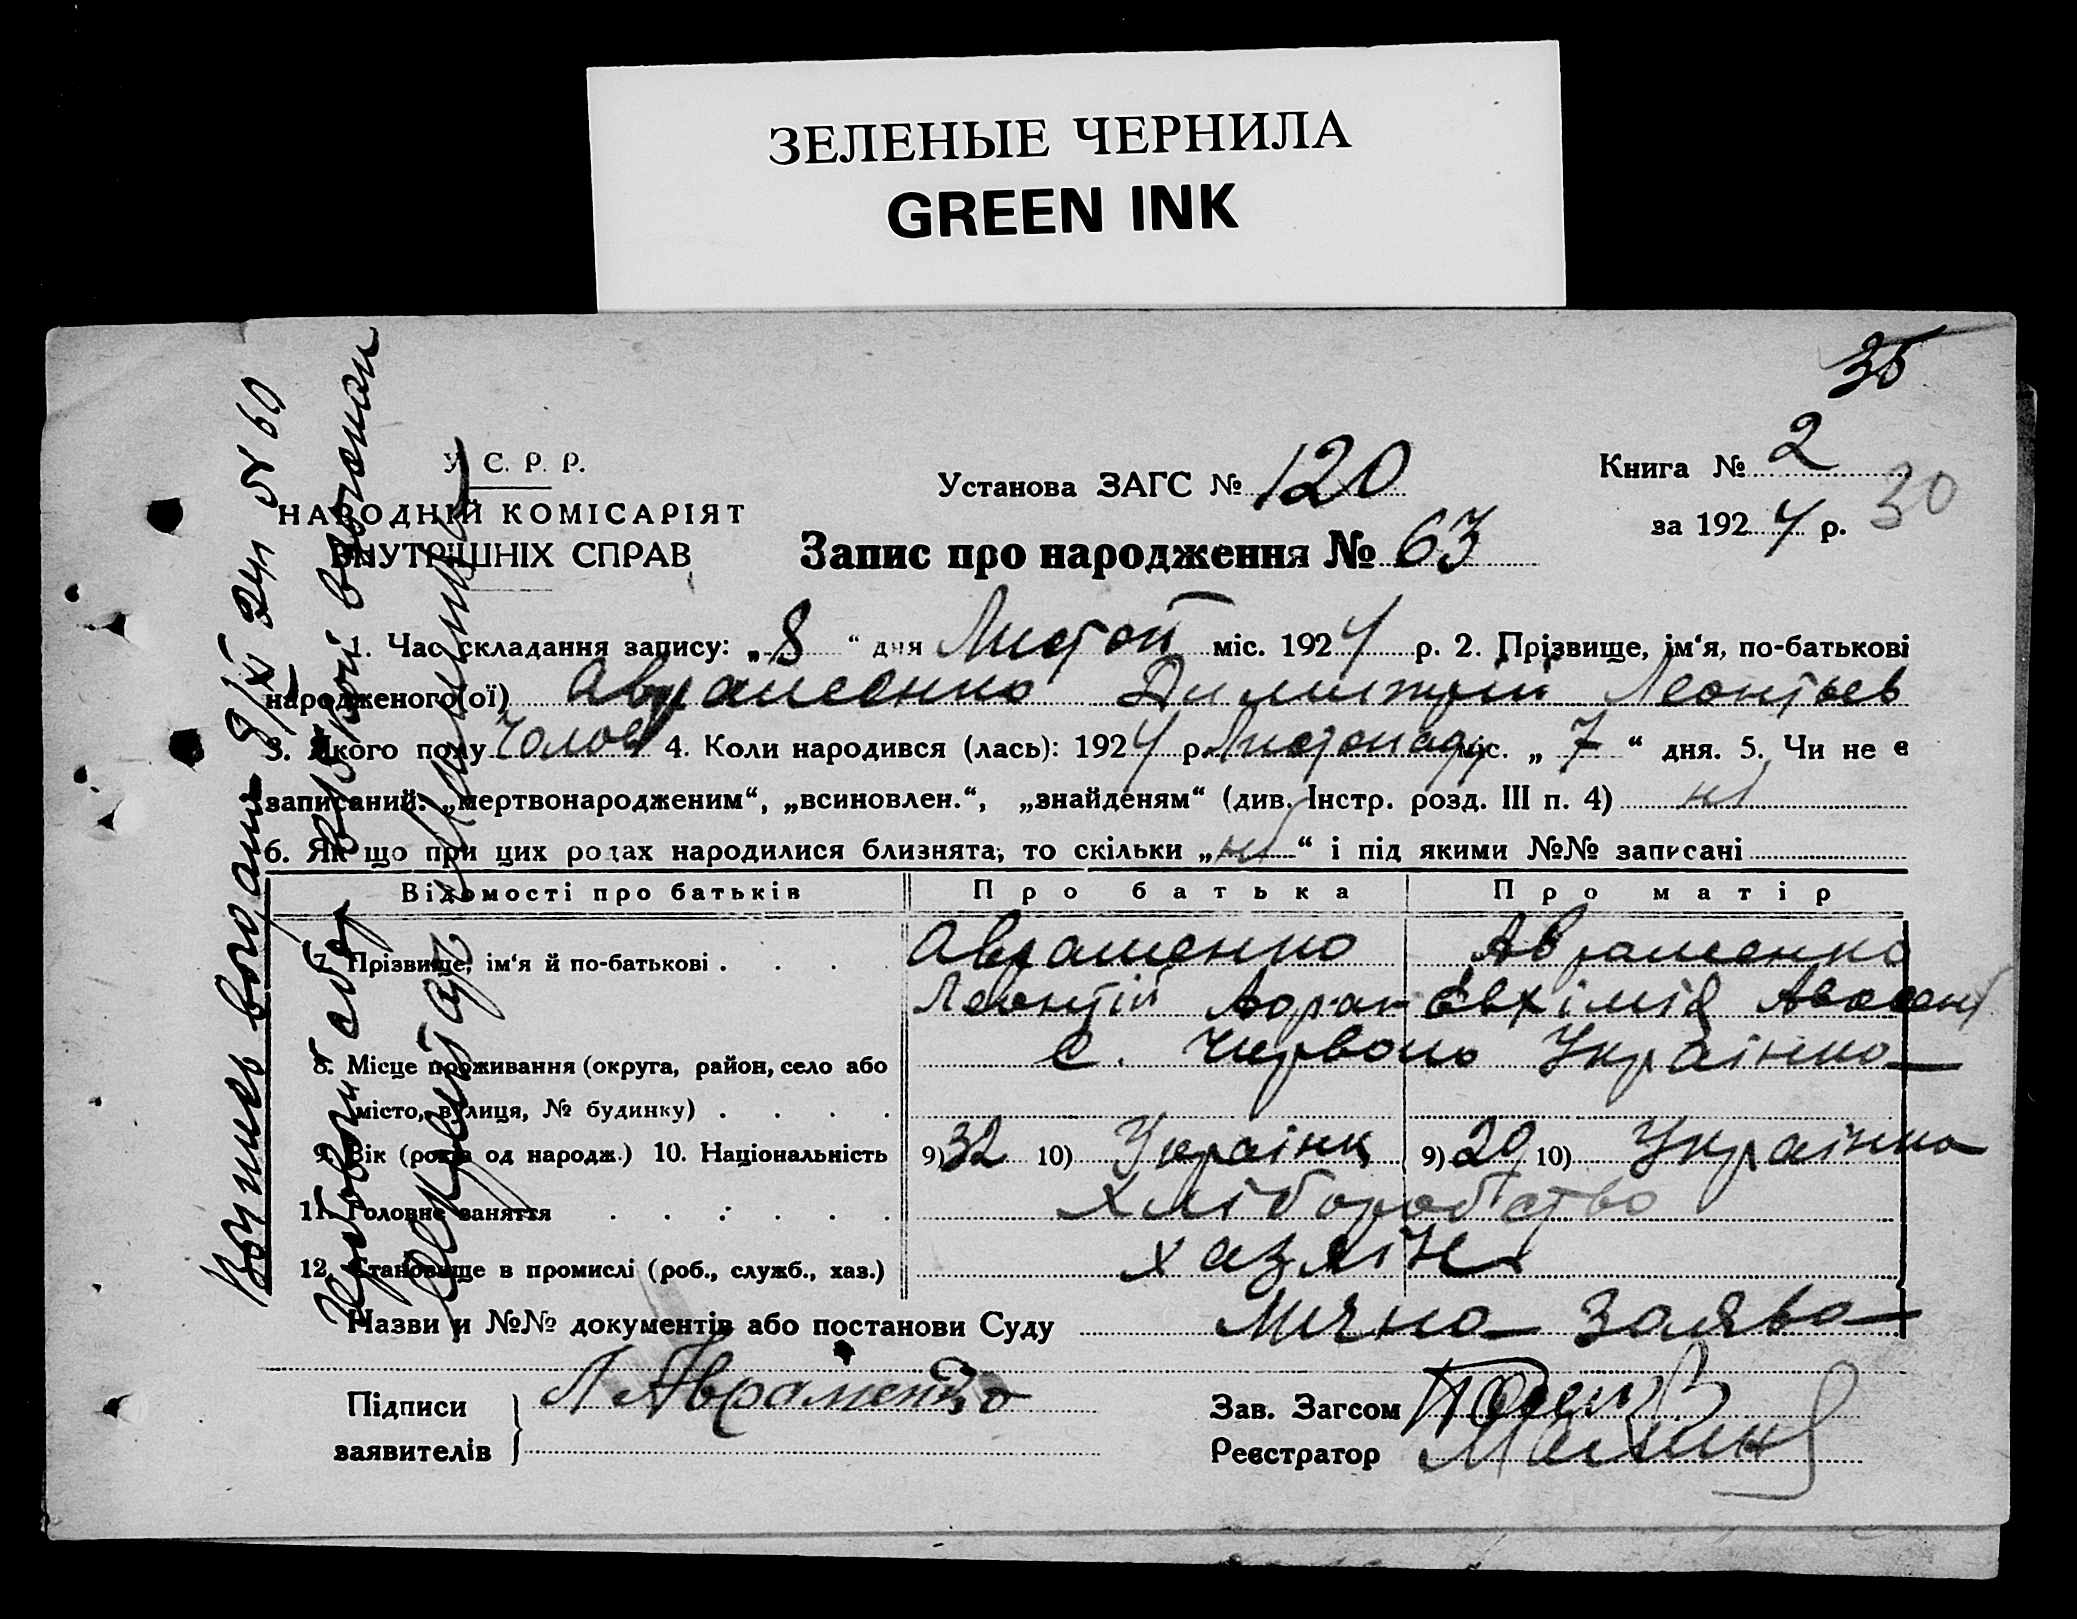 ЗЕЛЕНЫЕ ЧЕРНИЛА
GREEN INK
35
У. С. Р. Р.
НАРОДНІЙ КОМІСАРІЯТ
ВНУТРІШНІХ СПРАВ
Установа ЗАГС № 120
Книга № 2
30
за 1924 р.
Запис про народження № 63
1. Час складання запису: „8“ дня Листоп міс. 1924 р. 2. Прізвище, ім‘я, по-батькові
народженого(ої) Авраменко Димитрий Леонтьев
3. Якого полу Чолов 4. Коли народився (лась): 1924 р. Листопаду міс. „7“ дня. 5. Чи не є
записаний: „мертвонародженим“, „всиновлен.“, „знайденям“ (див. Інстр. розд. III п. 4) ні
6. Як що при цих родах народилися близнята, то скільки „ні“ і під якими №№ записані
Відомості про батьків Про батька Про матір
7. Прізвище, ім‘я й по-батькові . . . . Авраменко Авраменко
Леонтій Євхімія
8. Місце проживання (округа, район, село або с. Червоно Українка
місто, вулиця, № будинку) . . . .
9. Вік (років од народж.) 10. Національність 9) 32 10) Українц 9) 29 10) Українка
11. Головне заняття . . . . . . хліборобство
12. Становище в промислі (роб., служб., хаз.) хазяїн
Назви и №№ документів або постанови Суду Мочна Заява
Підписи
заявителів
Л Авраменко
Зав. Загсом
Реєстратор
Виписъ видана 8/XI 24 р № 60